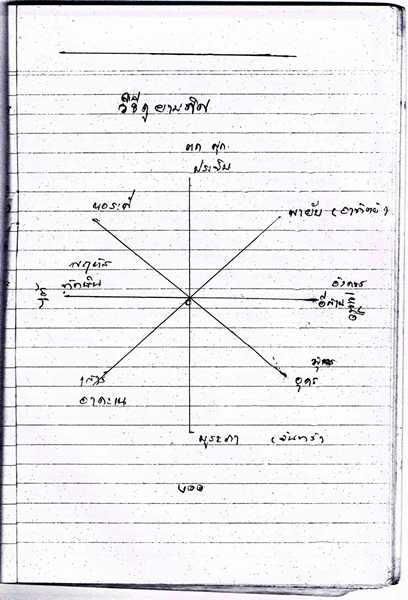 วิธีดูยามทิศ
ตก ศุก
ประจิม
หอระดี
พายัพ (อาทิตย์)
พฤหัส
ทักษิณ
ใต้
อังคาร
อีสาน
เหนือ
พุธ
อุดร
เสาร์
อาคะเน
บูระพา (จันทร์)
๒๐๐